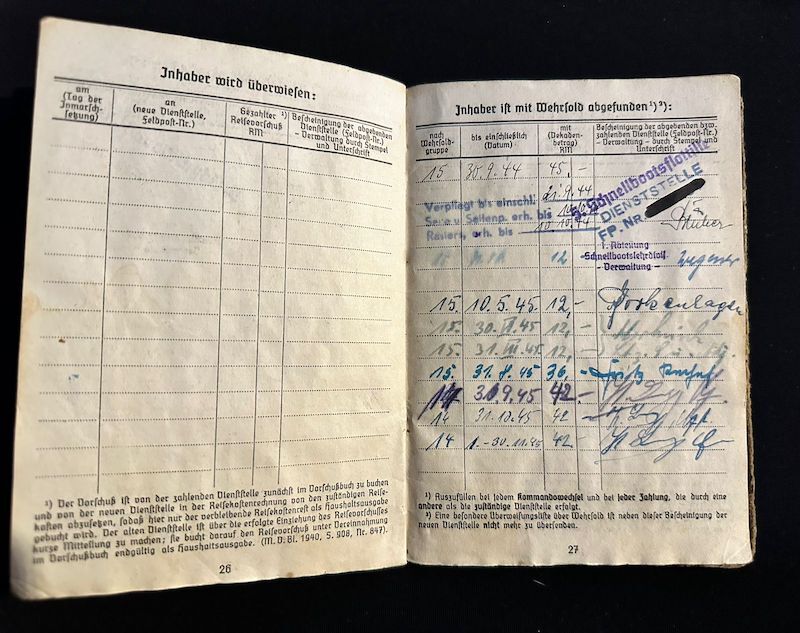 Inhaber wird überwiesen:
am
(Tag der
Inmarsch-
setzung)
an
(neue Dienststelle,
Feldpost-Nr.)
Gezahlter ¹)
Reisevorschuß
RM
Bescheinigung der abgebenden
Dienststelle (Feldpost-Nr.)
- Verwaltung durch Stempel
und Unterschrift
¹) Der Vorschuß ist von der zahlenden Dienststelle zunächst im Vorschußbuch zu buchen
und von der neuen Dienststelle in der Reisekostenrechnung von den zuständigen Reise-
kosten abzusetzen, sodaß hier nur der verbleibende Reisekostenrest als Haushaltsausgabe
gebucht wird. Der alten Dienststelle ist über die erfolgte Einziehung des Reisevorschusses
kurze Mitteilung zu machen; sie bucht darauf den Reisevorschuß unter Vereinnahmung
im Vorschußbuch endgültig als Haushaltsausgabe. (M. D. Bl. 1940, S. 908, Nr. 847).
26
Inhaber ist mit Wehrsold abgefunden¹)²):
nach
Wehrsold-
gruppe
bis einschließlich
(Datum)
mit
(Dekaden-
betrag)
RM
Bescheinigung der abgebenden bzw.
zahlenden Dienststelle (Feldpost-Nr.)
- Verwaltung - durch Stempel und
Unterschrift
15 30.9.44 45.-
Schnellbootsflottille
DIENSTSTELLE
FP.NR.
Verpflegt bis einschl. 21.9.44
Seife u. Seifenp. erh. bis
Rasiers. erh. bis 10.10.44
1. Abteilung
Schnellbootslehrdivision
- Verwaltung -
12.-
15. 10.5.45 12,-
15. 30.IV.45 12,-
15. 31.III.45 12,-
15. 31.8.45 36.-
14 30.9.45 42.-
14 31.10.45 42
14 1.-30.11.45 42.-
¹) Auszufüllen bei jedem Kommandowechsel und bei jeder Zahlung, die durch eine
andere als die zuständige Dienststelle erfolgt.
²) Eine besondere Überweisungsliste über Wehrsold ist neben dieser Bescheinigung der
neuen Dienststelle nicht mehr zu übersenden.
27